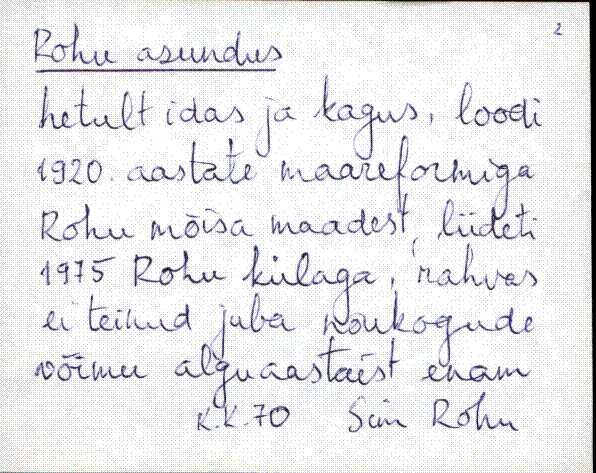 2
Rohu asundus
hetult idas ja kagus, loodi
1920. aastate maareformiga
Rohu mõisa maadest, liideti
1975 Rohu külaga, rahvas
ei teinud juba nõukogude
võimu alguaastaist enam
K.K. 70 Siin Rohu